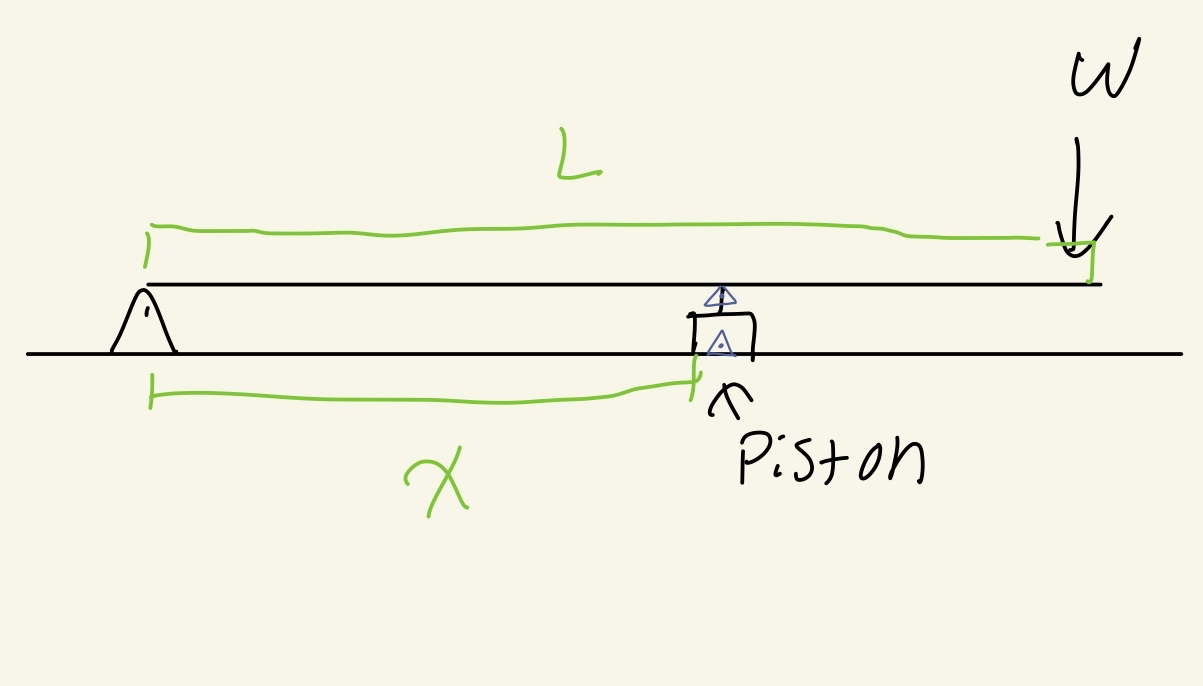 W
L
Piston
x